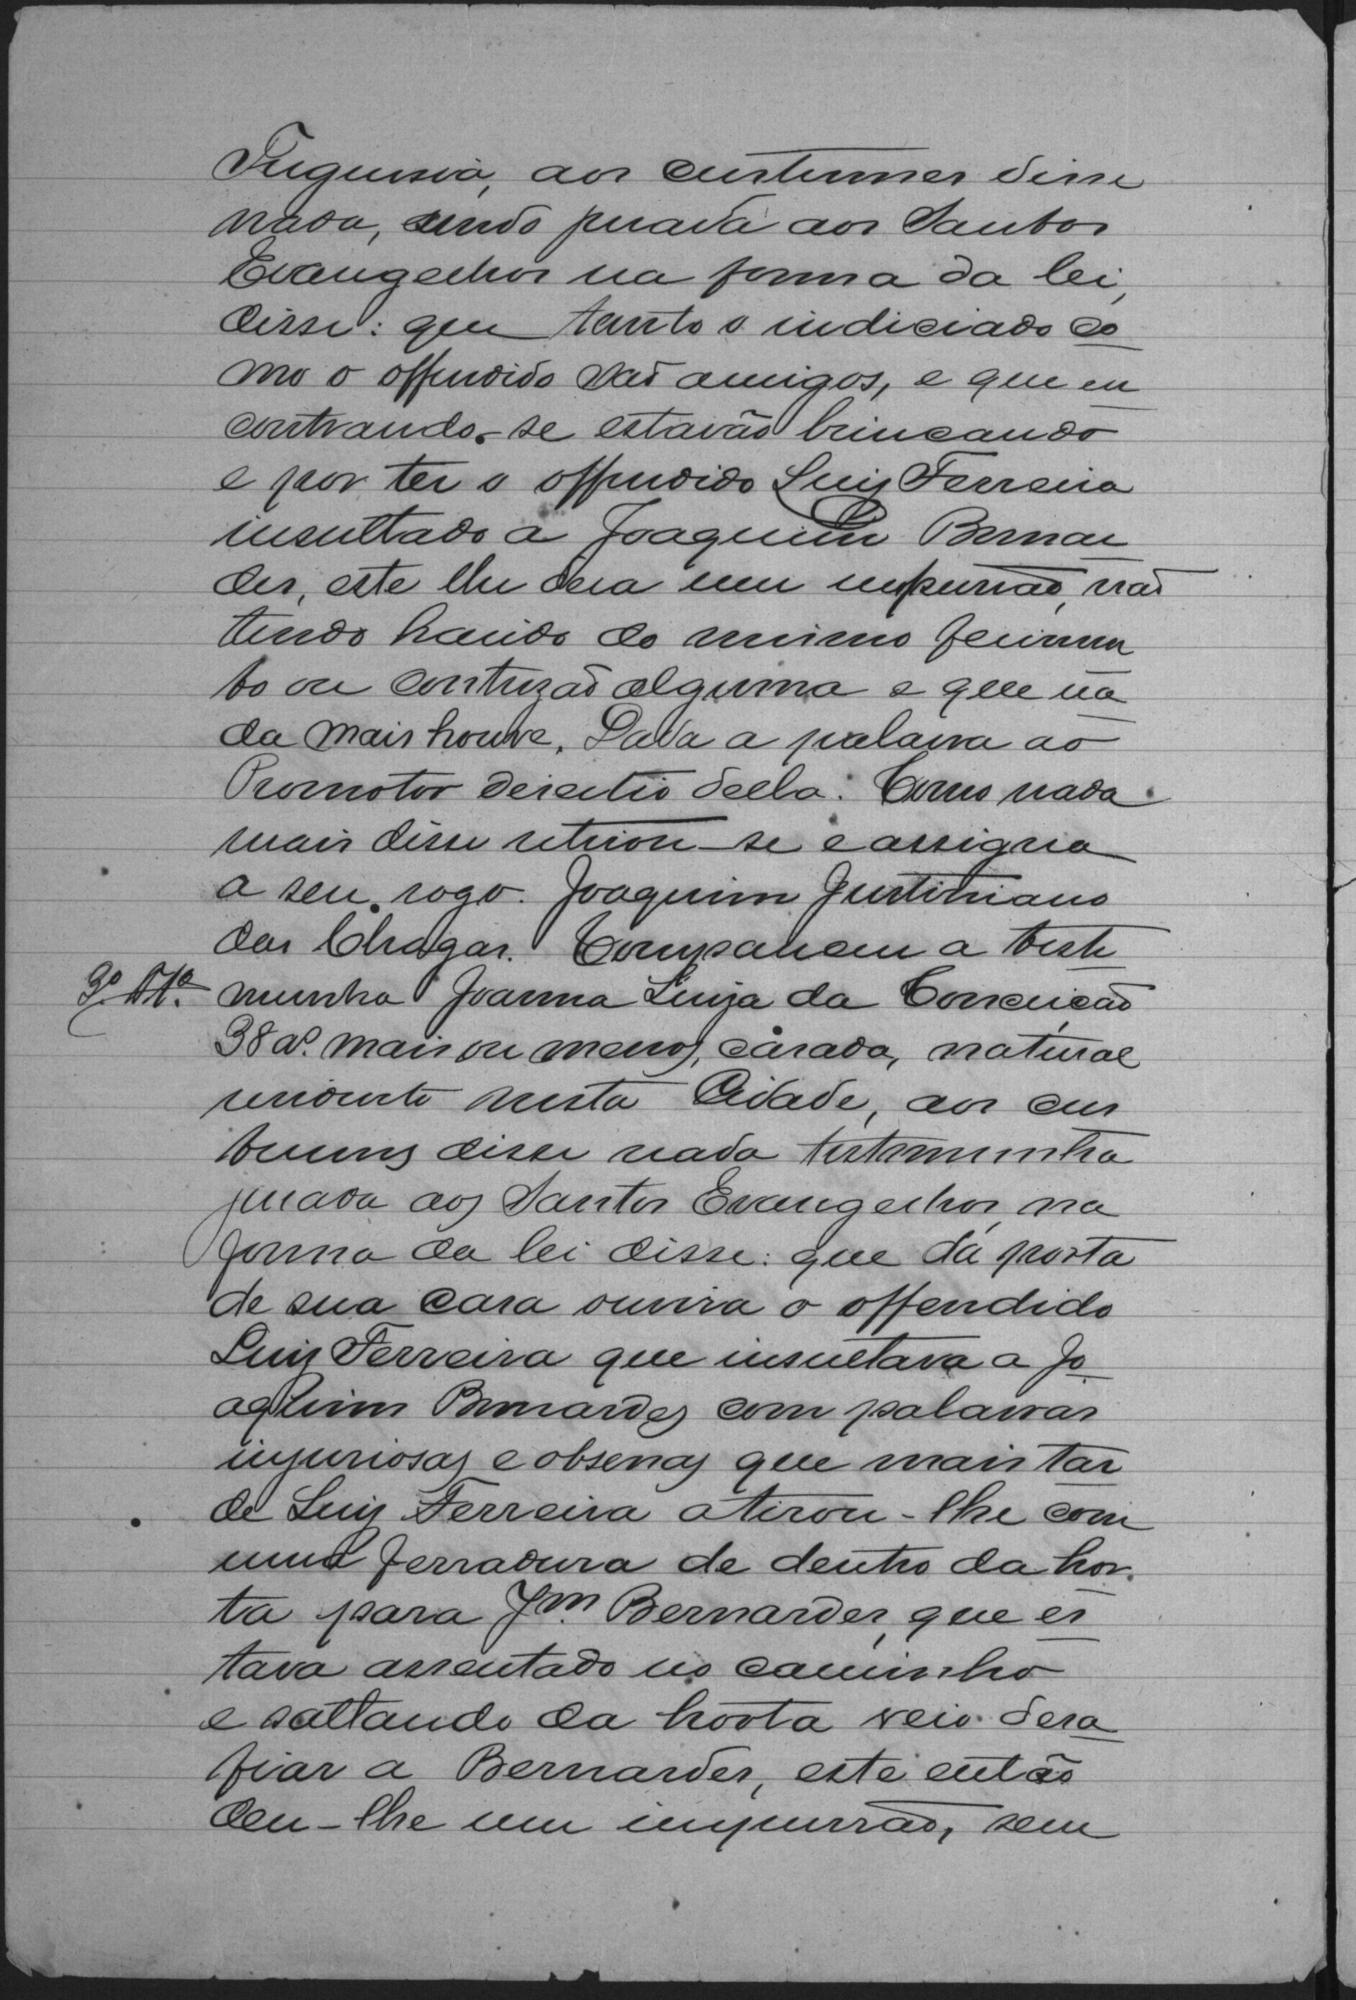 Freguesia, aos custumes disse
nada, sendo jurada aos Santos
Evangelhos na forma da lei,
disse: que tanto o indiciado co
mo o offendido são amigos, e que en
contrando-se estavão brincando
e por ter o offendido Luiz Ferreira
insultado a Joaquim Bernar
des, este lhe dera um impurrão, não
tendo havido do mesmo ferimen
to ou contuzão alguma e que na
da mais houve. Dada a palavra ao
Promotor desestio della. Como nada
mais disse retirou-se e assigna
a seu rogo. Joaquim Justiniano
das Chagas. Compareceu a teste
3ª Tª. munha Joanna Luiza da Conceição
38 aº. mais ou menos, casada, natural
residente nesta Cidade, aos cus
tumes disse nada testemunha
jurada aos Santos Evangelhos, na
forma da lei disse: que da porta
de sua casa ouvira o offendido
Luiz Ferreira que insultava a Jo
aquim Bernardes com palavras
injuriosas e obsenas que mais tar
de Luiz Ferreira atirou-lhe com
uma ferradura de dentro da hor
ta para Jm. Bernardes, que es
tava assentado no caminho
e saltando da horta veio desa
fiar a Bernardes, este então
deu-lhe um impurrão, sem